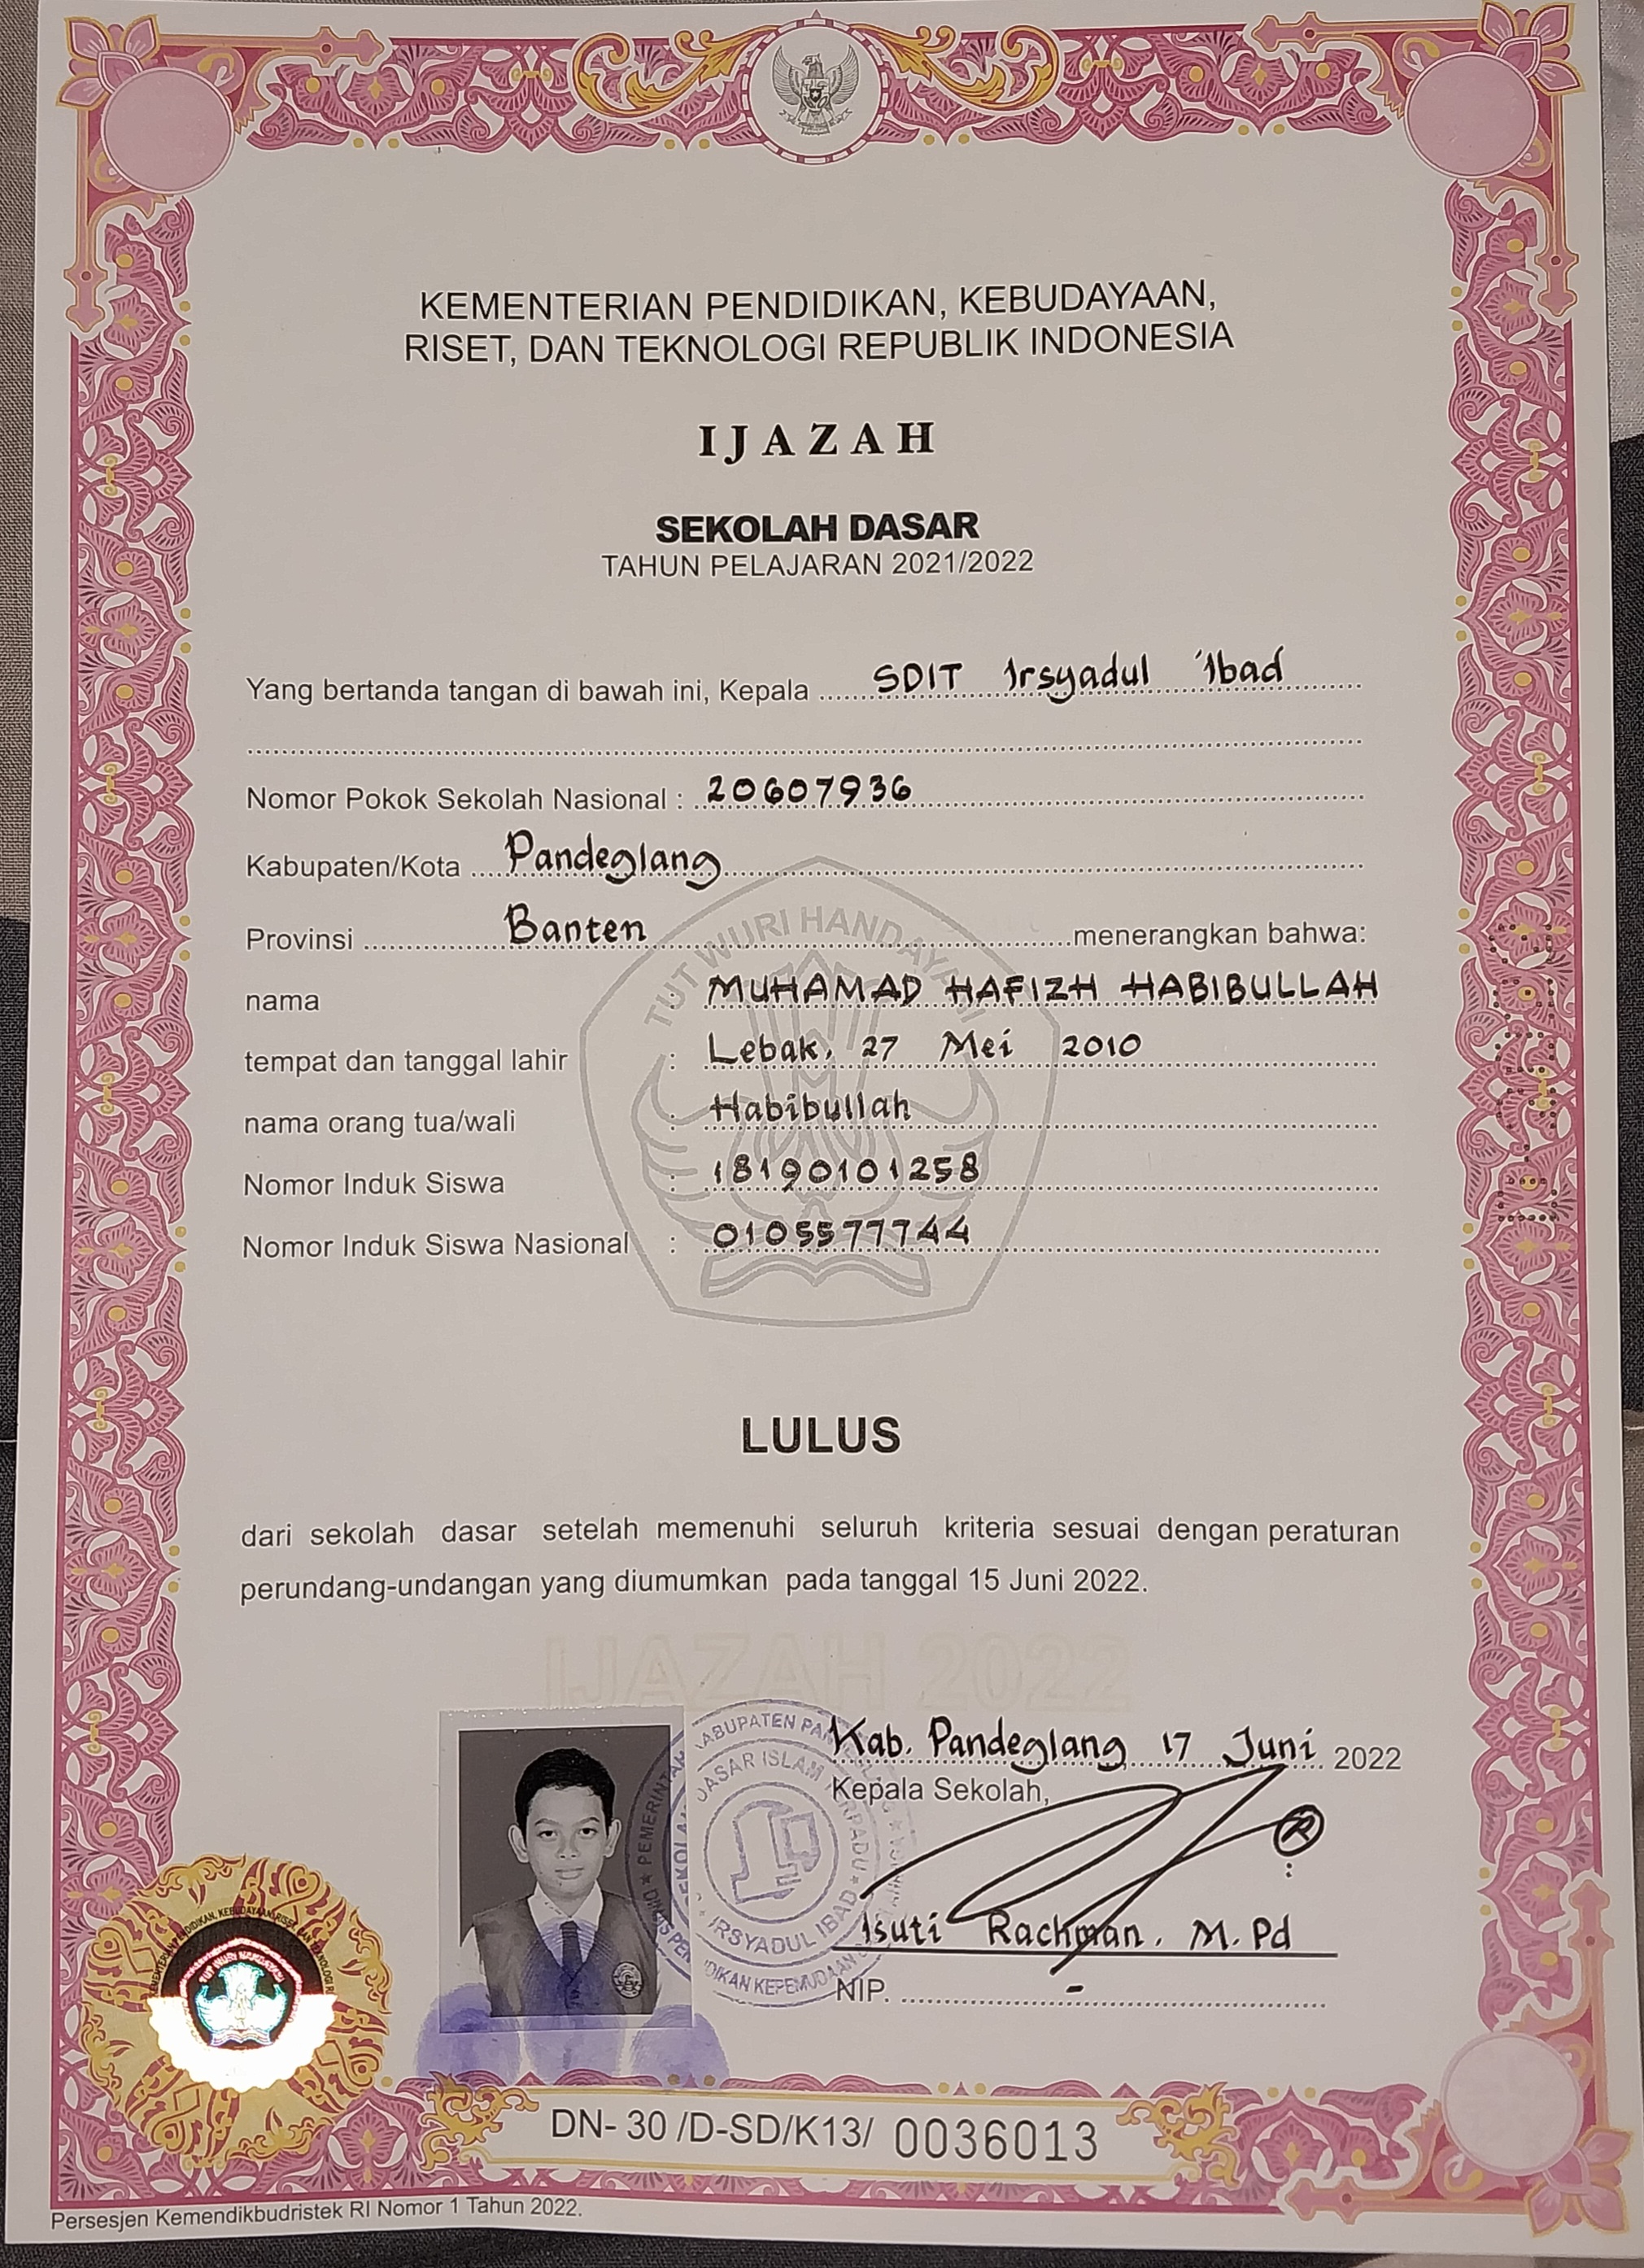 KEMENTERIAN PENDIDIKAN, KEBUDAYAAN,
RISET, DAN TEKNOLOGI REPUBLIK INDONESIA
IJAZAH
SEKOLAH DASAR
TAHUN PELAJARAN 2021/2022
Yang bertanda tangan di bawah ini, Kepala SDIT Irsyadul 'Ibad
Nomor Pokok Sekolah Nasional : 20607936
Kabupaten/Kota Pandeglang
Provinsi Banten menerangkan bahwa:
TUT WURI HANDAYANI
nama MUHAMAD HAFIZH HABIBULLAH
tempat dan tanggal lahir : Lebak, 27 Mei 2010
nama orang tua/wali : Habibullah
Nomor Induk Siswa : 18190101258
Nomor Induk Siswa Nasional : 0105577744
LULUS
dari sekolah dasar setelah memenuhi seluruh kriteria sesuai dengan peraturan
perundang-undangan yang diumumkan pada tanggal 15 Juni 2022.
IJAZAH 2022
Kab. Pandeglang, 17 Juni 2022
Kepala Sekolah,
Isuti Rachman, M.Pd
NIP. -
KABUPATEN
DASAR ISLAM TERPADU
IRSYADUL IBAD
TUT WURI HANDAYANI
DN- 30 /D-SD/K13/ 0036013
Persesjen Kemendikbudristek RI Nomor 1 Tahun 2022.